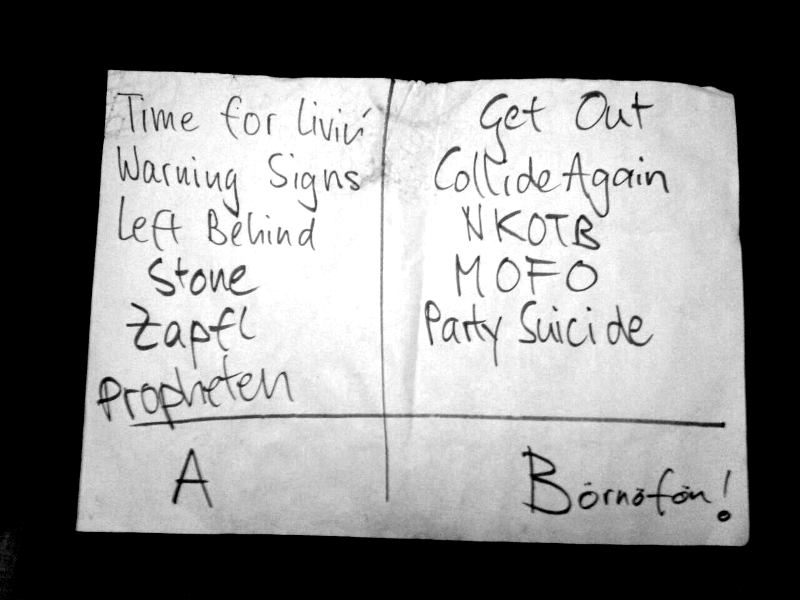 Time for Livin'
Warning Signs
Left Behind
Stone
Zapfl
Propheten
A
Get Out
Collide Again
NKOTB
MOFO
Party Suicide
Börnöfön!